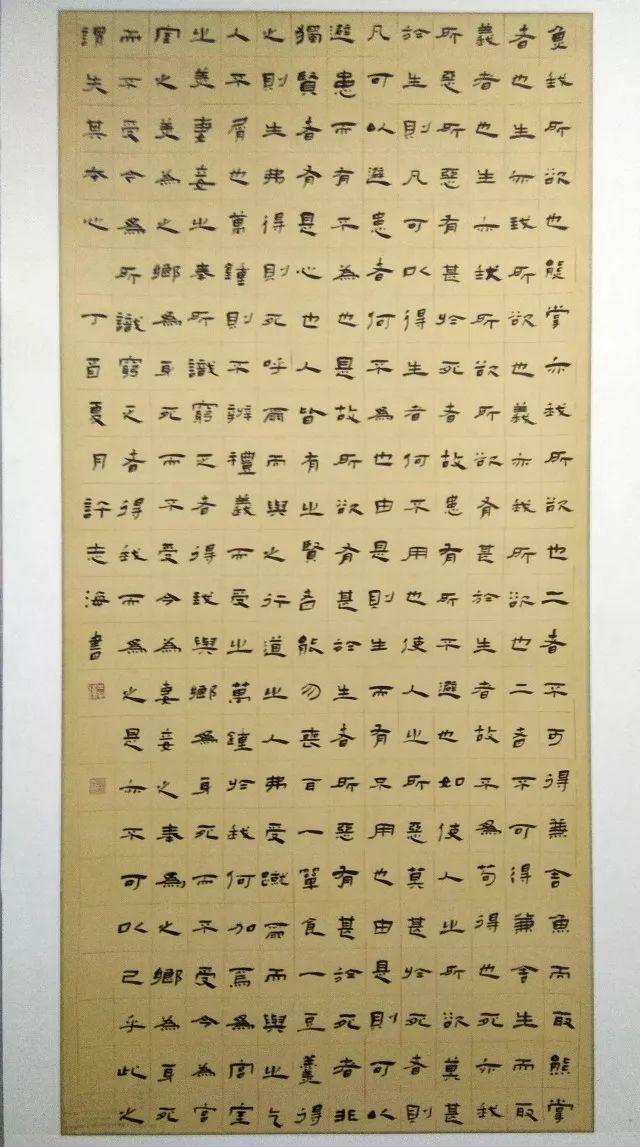 魚我所欲也熊掌亦我所欲也二者不可得兼舍魚而取熊掌
者也生亦我所欲也義亦我所欲也二者不可得兼舍生而取
義者也生亦我所欲所欲有甚於生者故不為苟得也死亦我
所惡所惡有甚於死者故患有所不避也如使人之所欲莫甚
於生則凡可以得生者何不用也使人之所惡莫甚於死者則
凡可以避患者何不為也由是則生而有不用也由是則可以
避患而有不為也是故所欲有甚於生者所惡有甚於死者非
獨賢者有是心也人皆有之賢者能勿喪耳一簞食一豆羹得
之則生弗得則死呼爾而與之行道之人弗受蹴爾而與之乞
人不屑也萬鐘則不辨禮義而受之萬鐘於我何加焉為宮室
之美妻妾之奉所識窮乏者得我與鄉為身死而不受今為宮
室之美為之鄉為身死而不受今為妻妾之奉為之鄉為身死
而不受今為所識窮乏者得我而為之是亦不可以已乎此之
謂失其本心 丁酉夏月許志海書